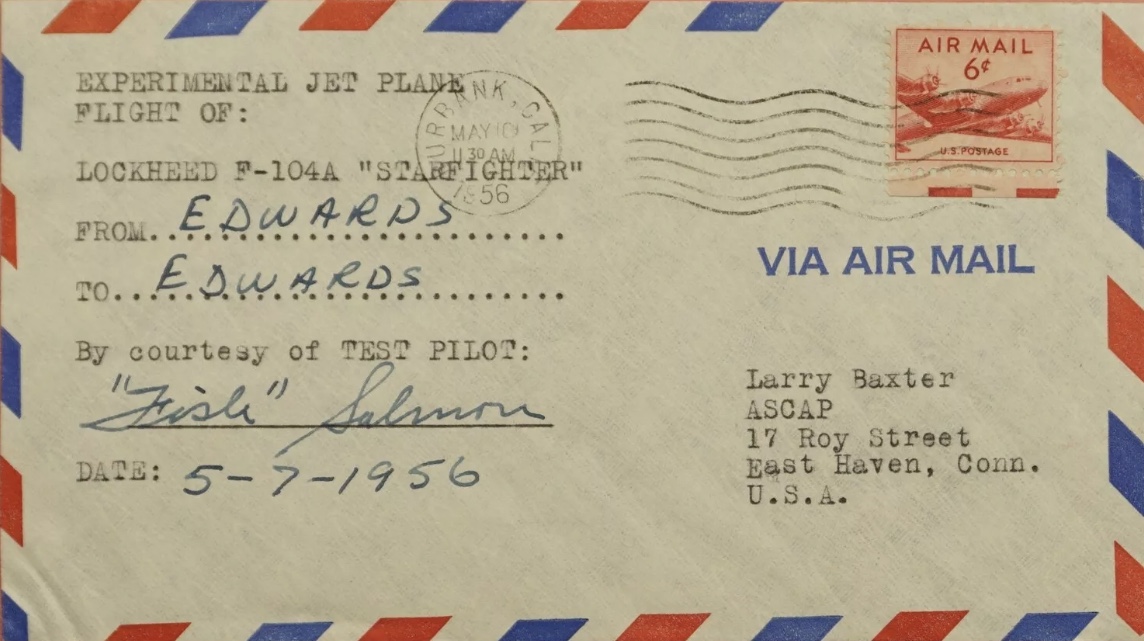 EXPERIMENTAL JET PLANE
FLIGHT OF:
LOCKHEED F-104A "STARFIGHTER"
FROM..EDWARDS
TO...EDWARDS
By courtesy of TEST PILOT:
"Fish" Salmon
DATE: 5-7-1956
BURBANK, CAL
MAY 10
11 30 AM
1956
AIR MAIL
6¢
U.S. POSTAGE
VIA AIR MAIL
Larry Baxter
ASCAP
17 Roy Street
East Haven, Conn.
U.S.A.